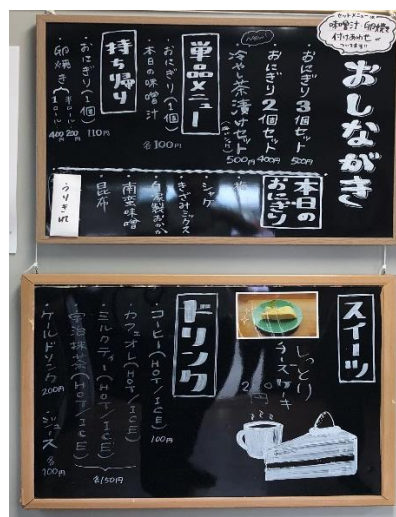 セットメニューは
味噌汁 卵焼き
付けあわせ
おしながき
・おにぎり3個セット 500円
・おにぎり2個セット 400円
New!
・冷やし茶漬けセット 500円
単品メニュー
・おにぎり(1個)
・本日の味噌汁
各100円
持ち帰り
・おにぎり(1個) 110円
・卵焼き
1ロール 400円
半ロール 200円
本日のおにぎり
・梅
・シャケ
・きざみミックス
・自家製おかか
・南蛮味噌
・昆布
うりきれ
スイーツ
しっとり
チーズケーキ
ドリンク
・コーヒー(HOT/ICE) 100円
・カフェオレ(HOT/ICE)
・ミルクティー(HOT/ICE)
・宇治抹茶(HOT/ICE)
各150円
・クールドリンク 200円
・ジュース 各100円